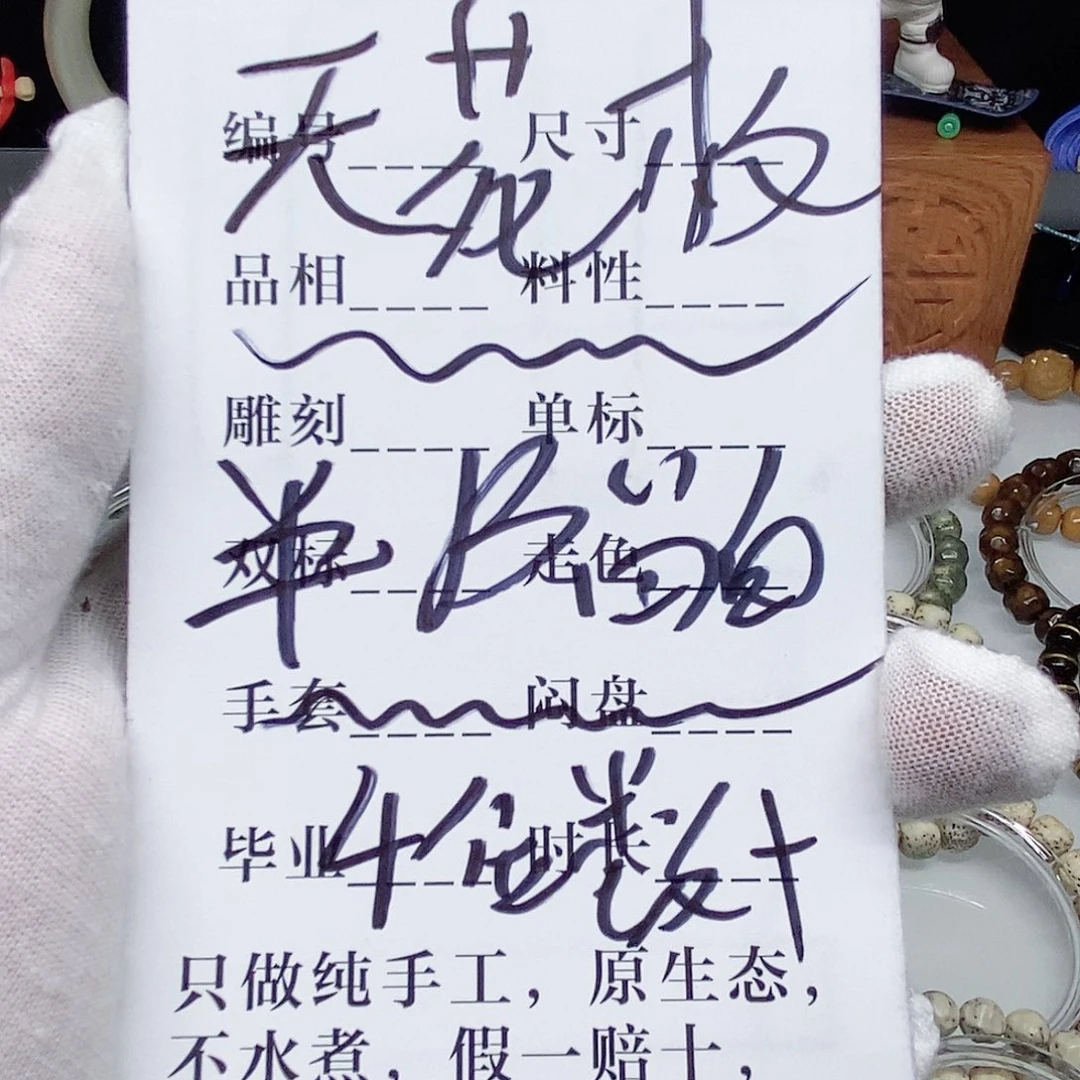 天花板
编号____ 尺寸____
品相____ 料性____
雕刻____ 单标____
双标____ 走色____
手套____ 闷盘____
4位数+
毕业____ 时长____
只做纯手工，原生态，
不水煮，假一赔十，